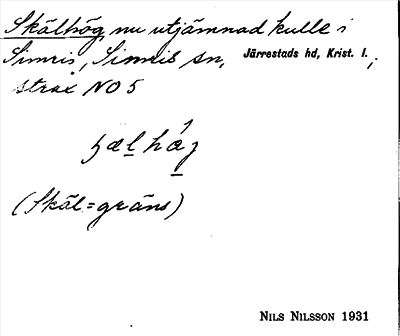 Skälhög, nu utjämnad kulle i
Simris, Simris sn, Järrestads hd, Krist. l.,
strax NO 5
(Skäl = gräns)
NILS NILSSON 1931